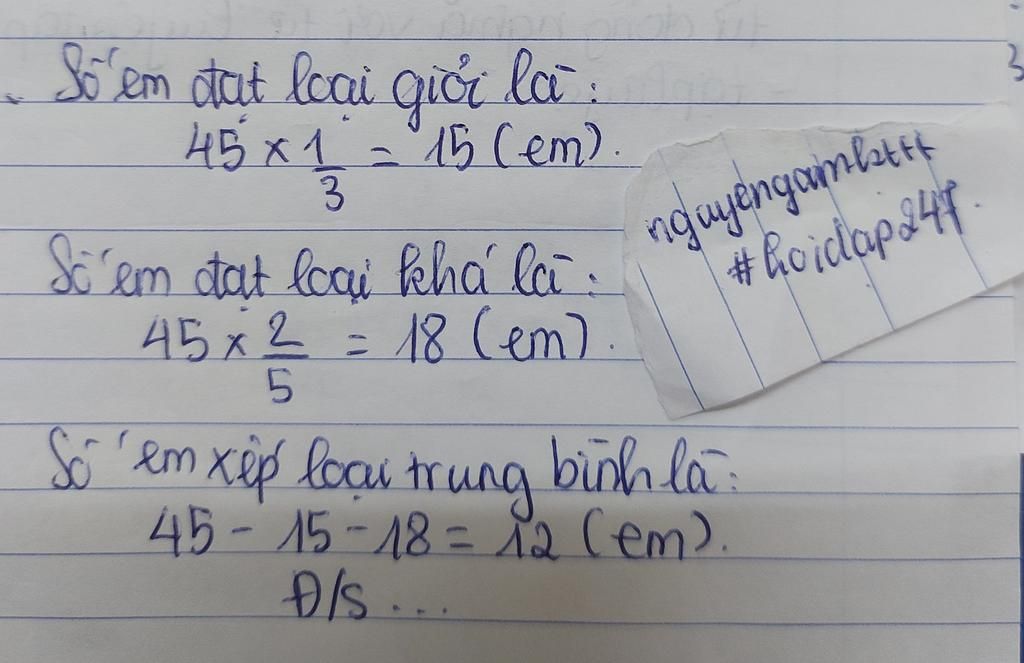 Số em đạt loại giỏi là:
45 × 1/3 = 15 (em).
Số em đạt loại khá là:
45 × 2/5 = 18 (em).
Số em xếp loại trung bình là:
45 - 15 - 18 = 12 (em).
Đ/S...
#hoidap247.
3